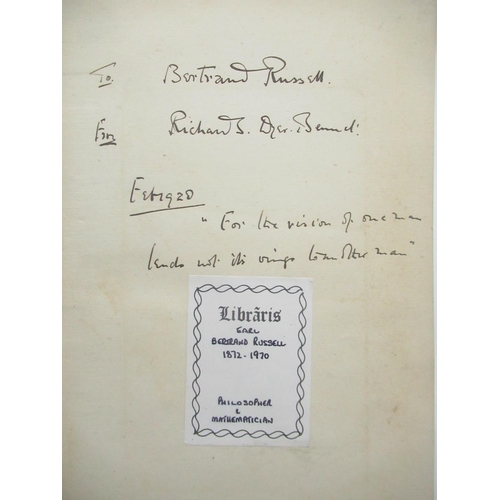 To. Bertrand Russell.
From Richard S. Dyer-Bennet.
Feb 1920
"For the vision of one man
lends not its wings to another man"
Librāris
EARL
BERTRAND RUSSELL
1872-1970
PHILOSOPHER
&
MATHEMATICIAN